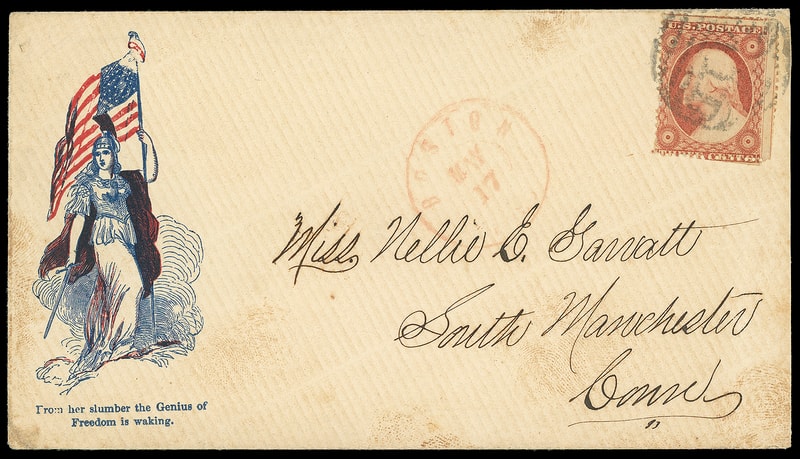 U.S. POSTAGE
BOSTON
MAY
17
Miss Nellie E. Garratt
South Manchester
Conn
From her slumber the Genius of
Freedom is waking.